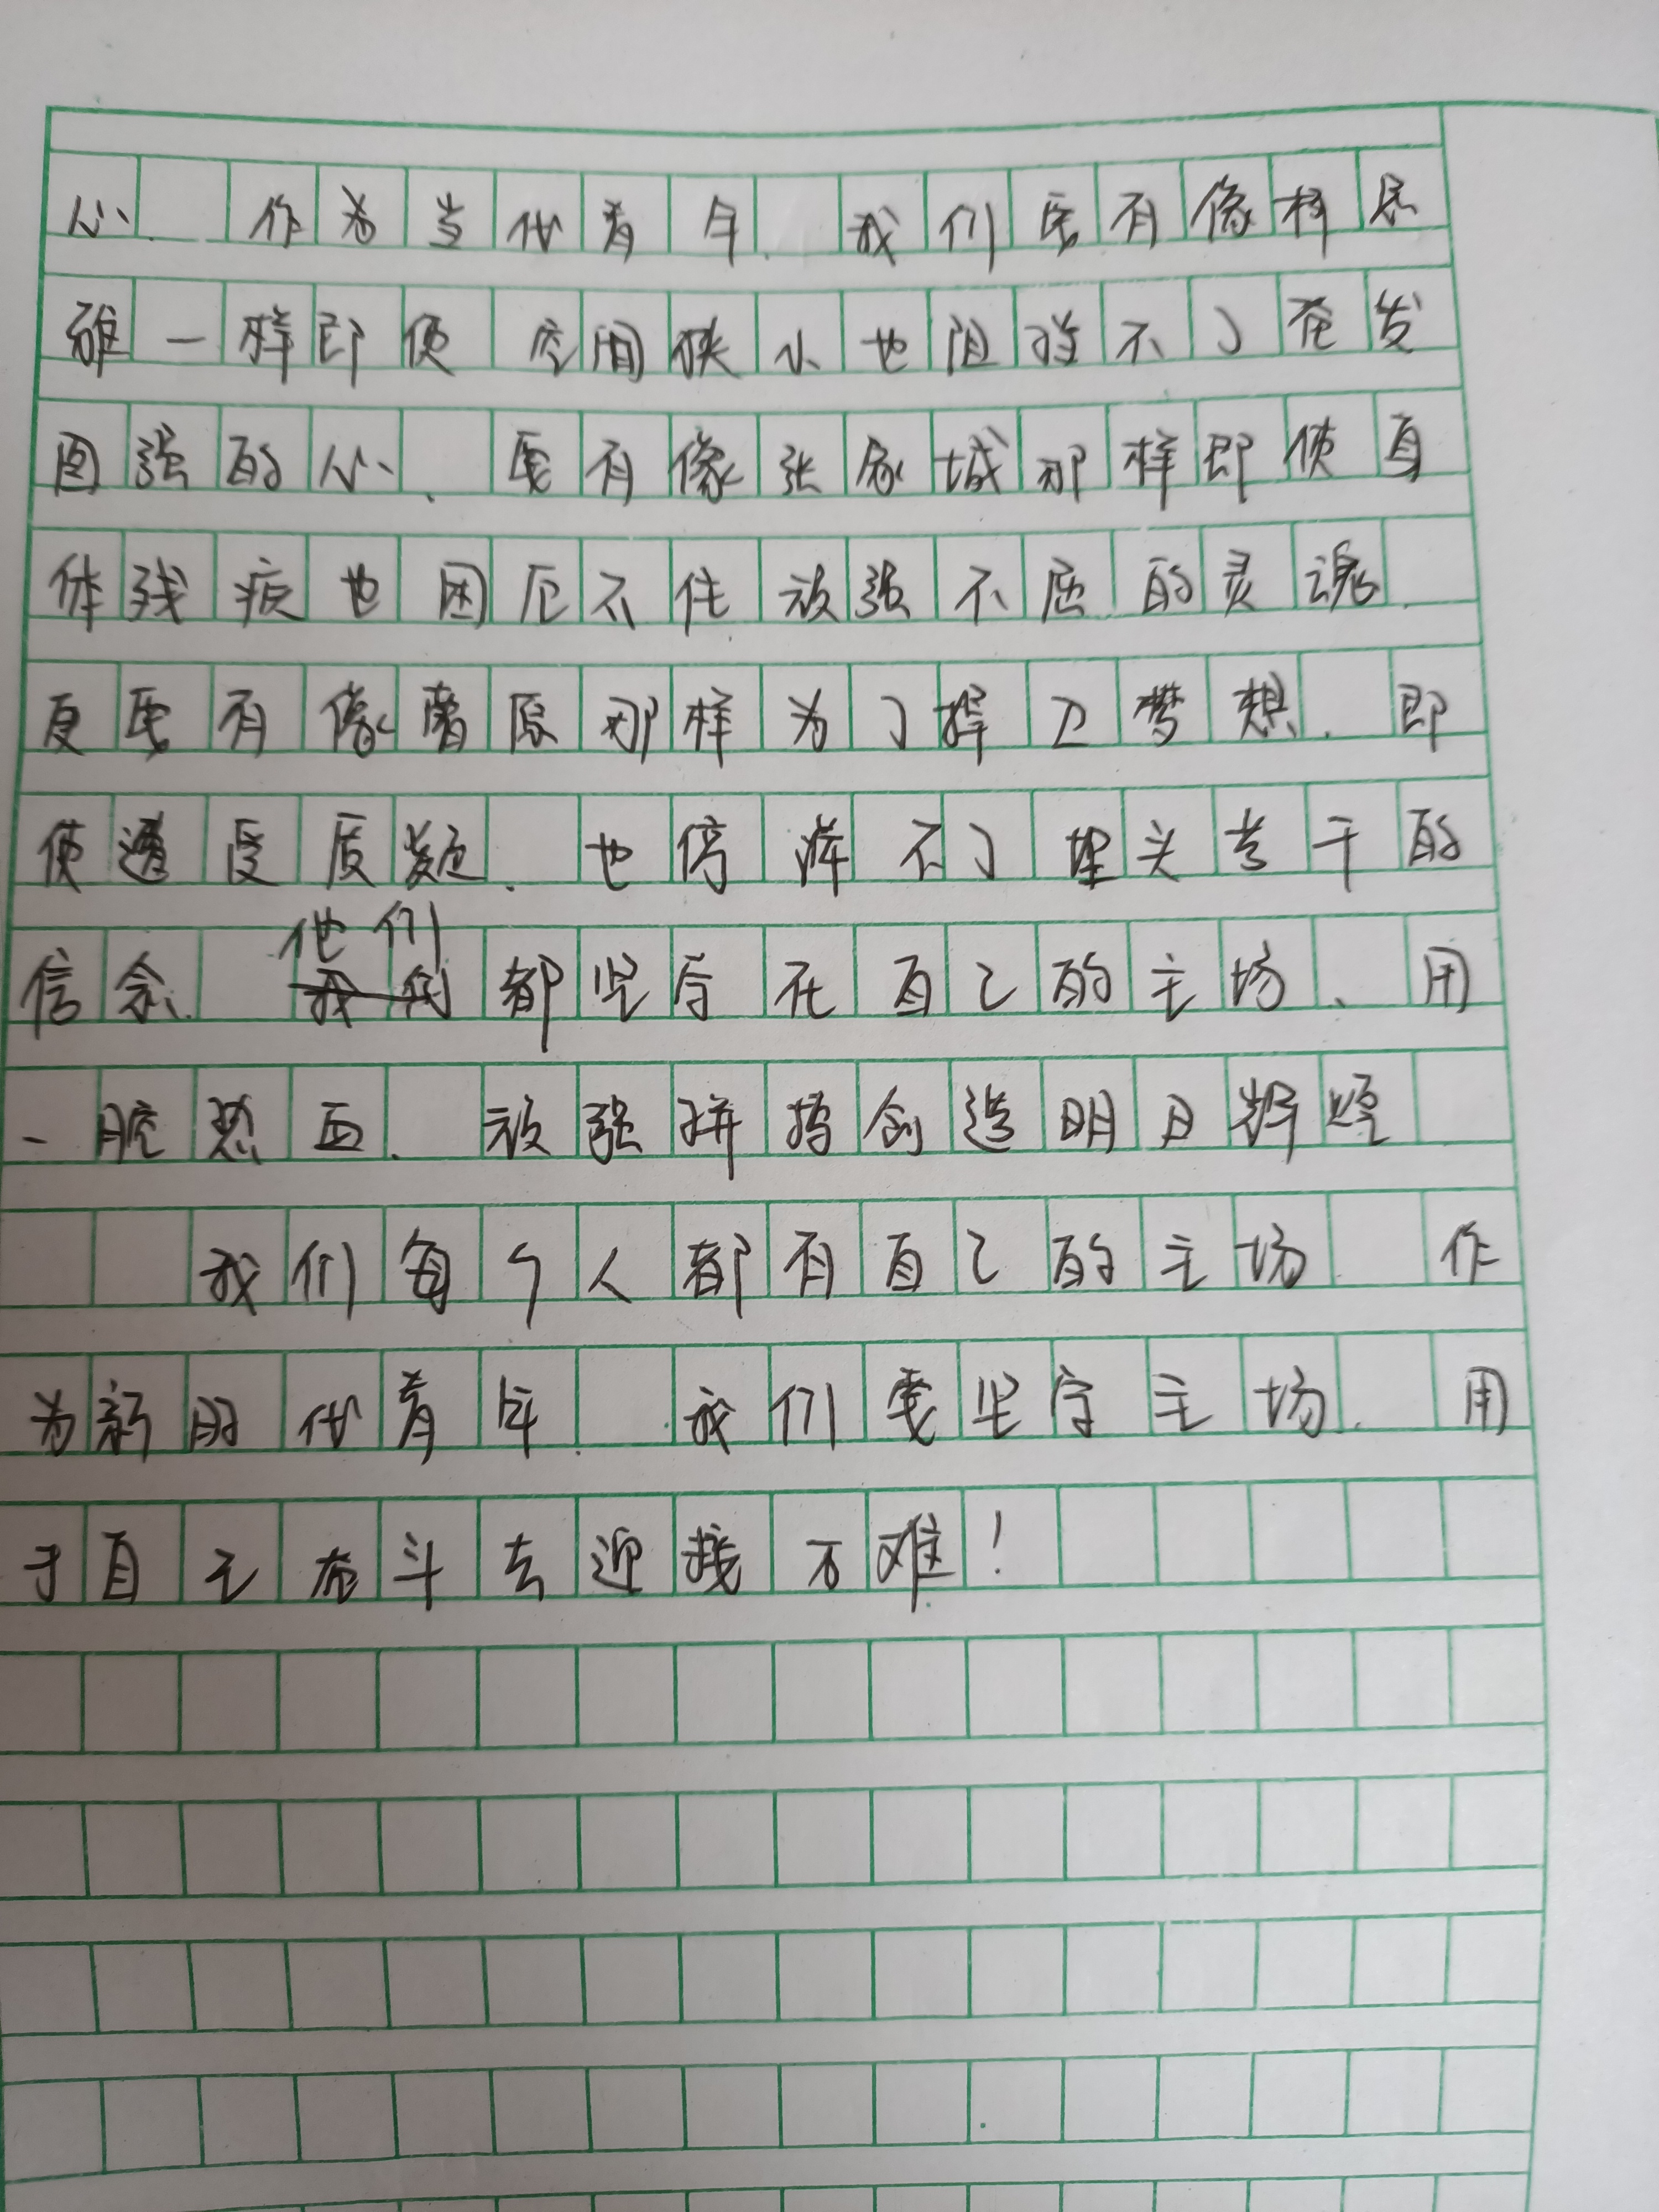 心.作为当代青年.我们要有像柯
一样即使空间狭小也阻挡不了奋发
图强的心.要有像张家城那样即使身
体残疾也困厄不住顽强不屈的灵魂.
更要有像屠原那样为了捍卫梦想.即
使遭受质疑.也停滞不了埋头苦干的
信念.他们都坚守在自己的主场、用
一腔热血.顽强拼搏创造明日辉煌
我们每个人都有自己的主场 作
为新时代青年.我们要坚守主场.用
于自己奋斗去迎接不难！